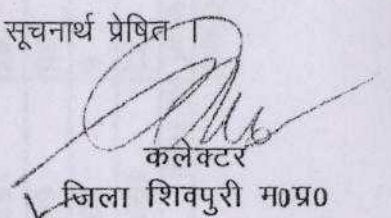 सूचनार्थ प्रेषित ।
कलेक्टर
जिला शिवपुरी म0प्र0